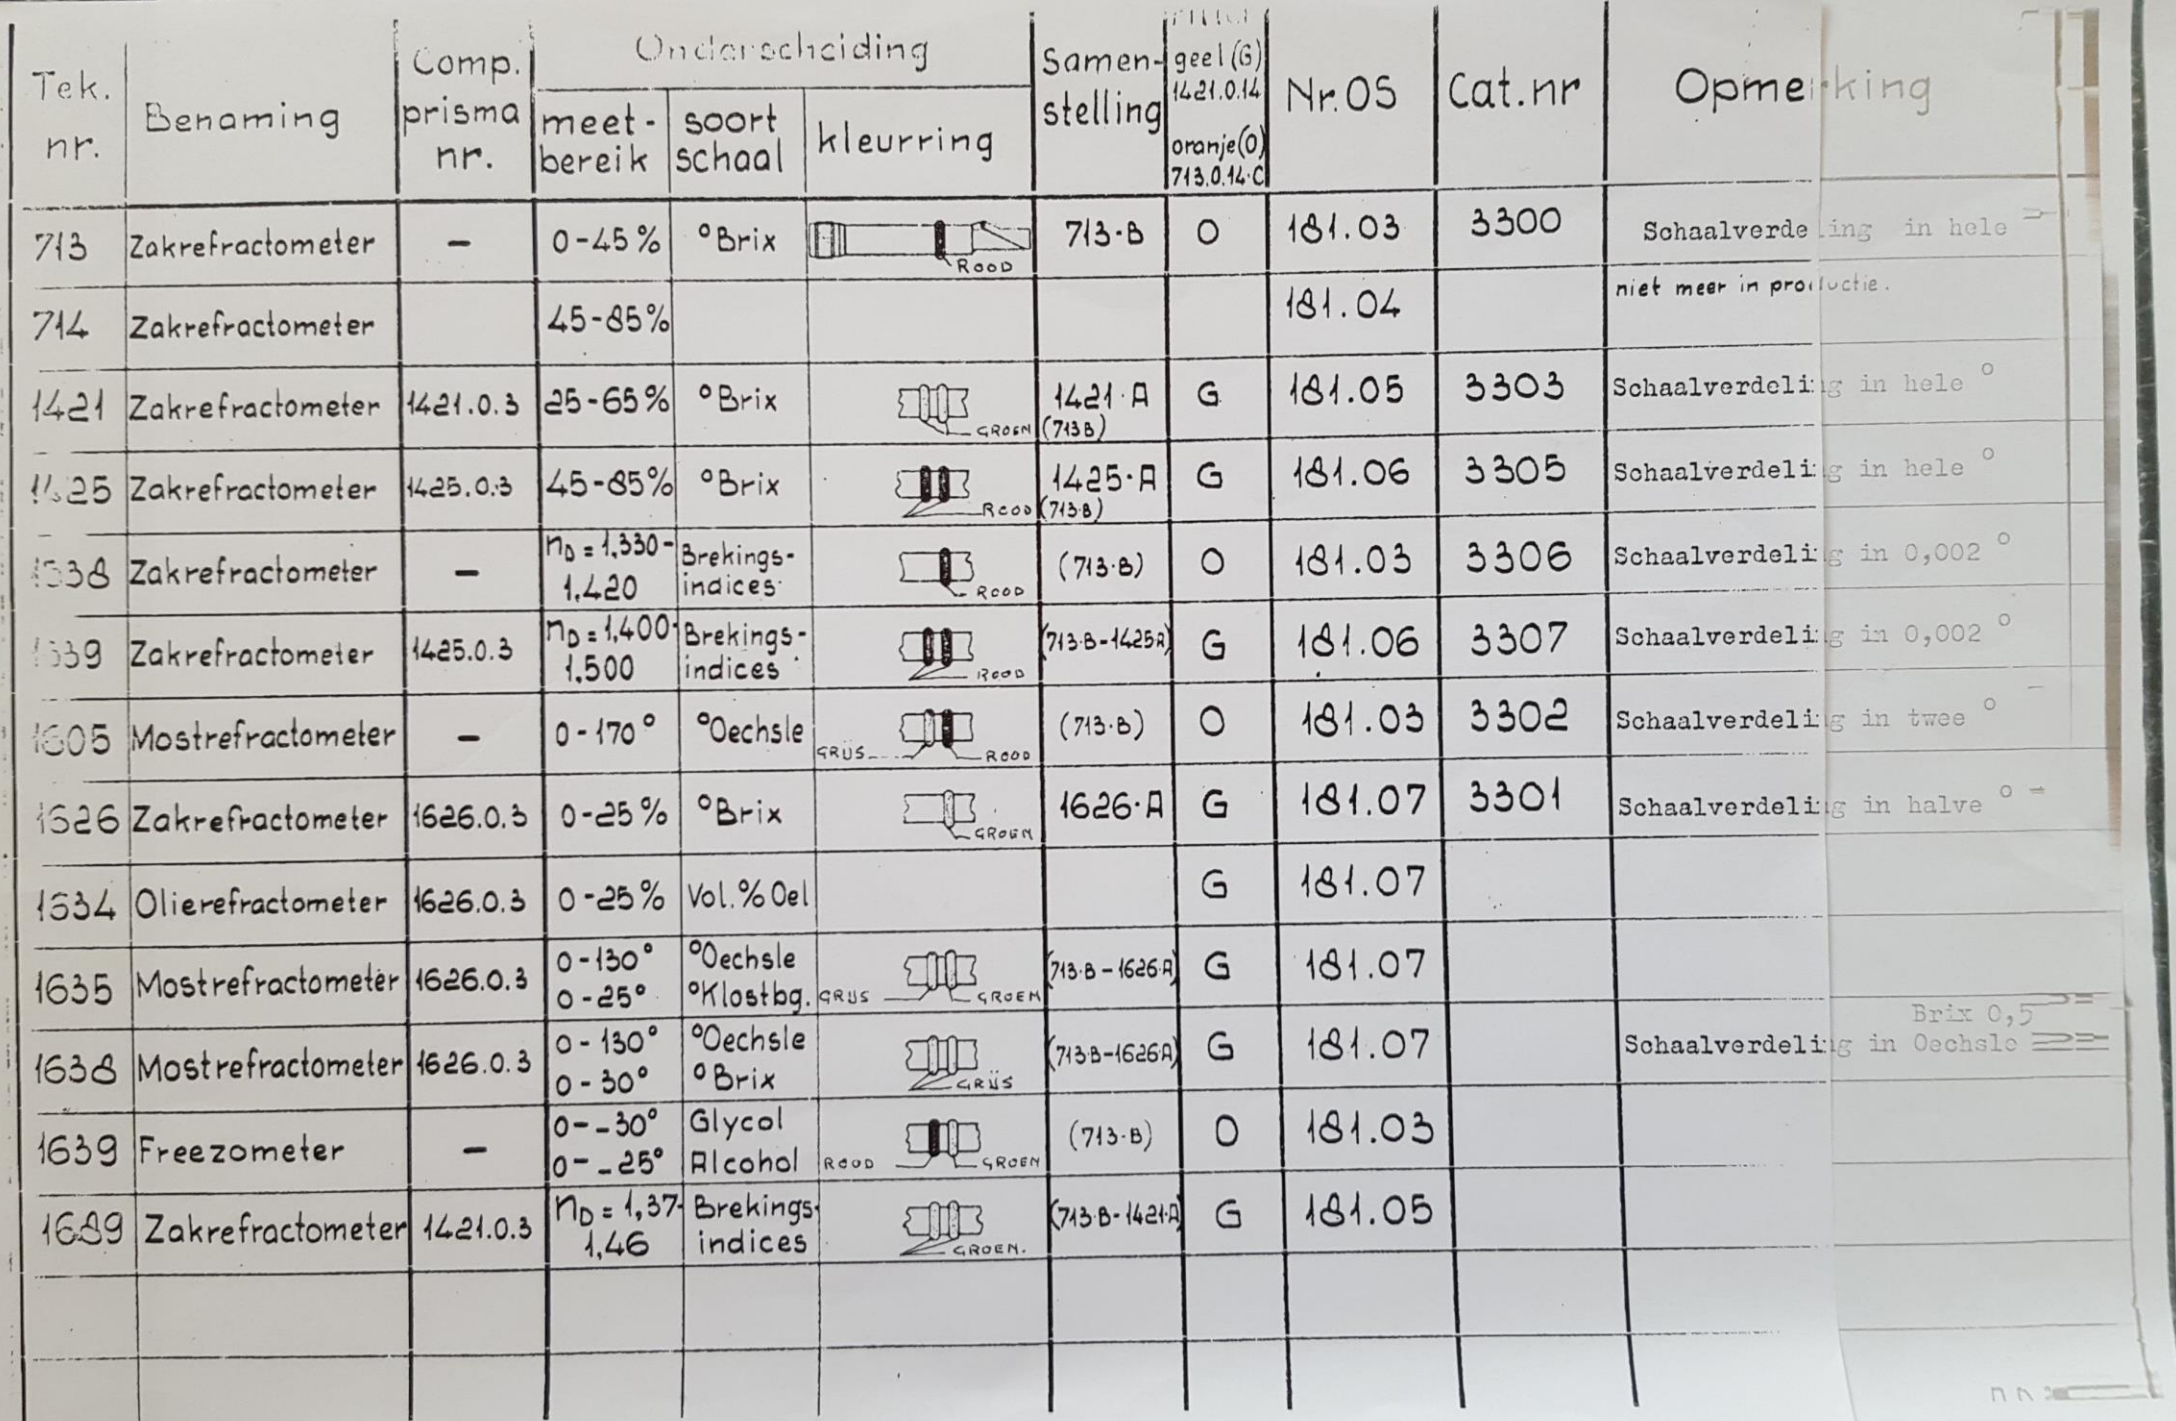 Tek. nr. Benaming Comp. prisma nr. Onderscheiding meet-bereik soort schaal kleurring Samen-stelling geel (G) 1421.0.14 oranje (O) 713.0.14.C Nr. OS Cat. nr Opmerking
713 Zakrefractometer – 0-45% °Brix ROOD 713·B O 181.03 3300 Schaalverdeling in hele
714 Zakrefractometer 45-85% 181.04 niet meer in productie.
1421 Zakrefractometer 1421.0.3 25-65% °Brix GROEN 1421·A (713B) G 181.05 3303 Schaalverdeling in hele °
1425 Zakrefractometer 1425.0.3 45-85% °Brix ROOD 1425·A (713·B) G 181.06 3305 Schaalverdeling in hele °
Zakrefractometer – nD = 1.330-1.420 Brekings-indices ROOD (713·B) O 181.03 3306 Schaalverdeling in 0,002 °
Zakrefractometer 1425.0.3 nD = 1.400-1.500 Brekings-indices ROOD (713·B-1425A) G 181.06 3307 Schaalverdeling in 0,002 °
1605 Mostrefractometer – 0-170° °Oechsle GRIJS ROOD (713·B) O 181.03 3302 Schaalverdeling in twee °
1626 Zakrefractometer 1626.0.3 0-25% °Brix GROEN 1626·A G 181.07 3301 Schaalverdeling in halve °
1634 Olierefractometer 1626.0.3 0-25% Vol.% Oel G 181.07
1635 Mostrefractometer 1626.0.3 0-130° 0-25° °Oechsle °Klostbg. GRIJS GROEN (713·B-1626·A) G 181.07
1638 Mostrefractometer 1626.0.3 0-130° 0-30° °Oechsle °Brix GRIJS (713·B-1626·A) G 181.07 Brix 0,5 Schaalverdeling in Oechsle
1639 Freezometer – 0--30° 0--25° Glycol Alcohol ROOD GROEN (713·B) O 181.03
1689 Zakrefractometer 1421.0.3 nD = 1,37-1,46 Brekings-indices GROEN. (713·B-1421·A) G 181.05